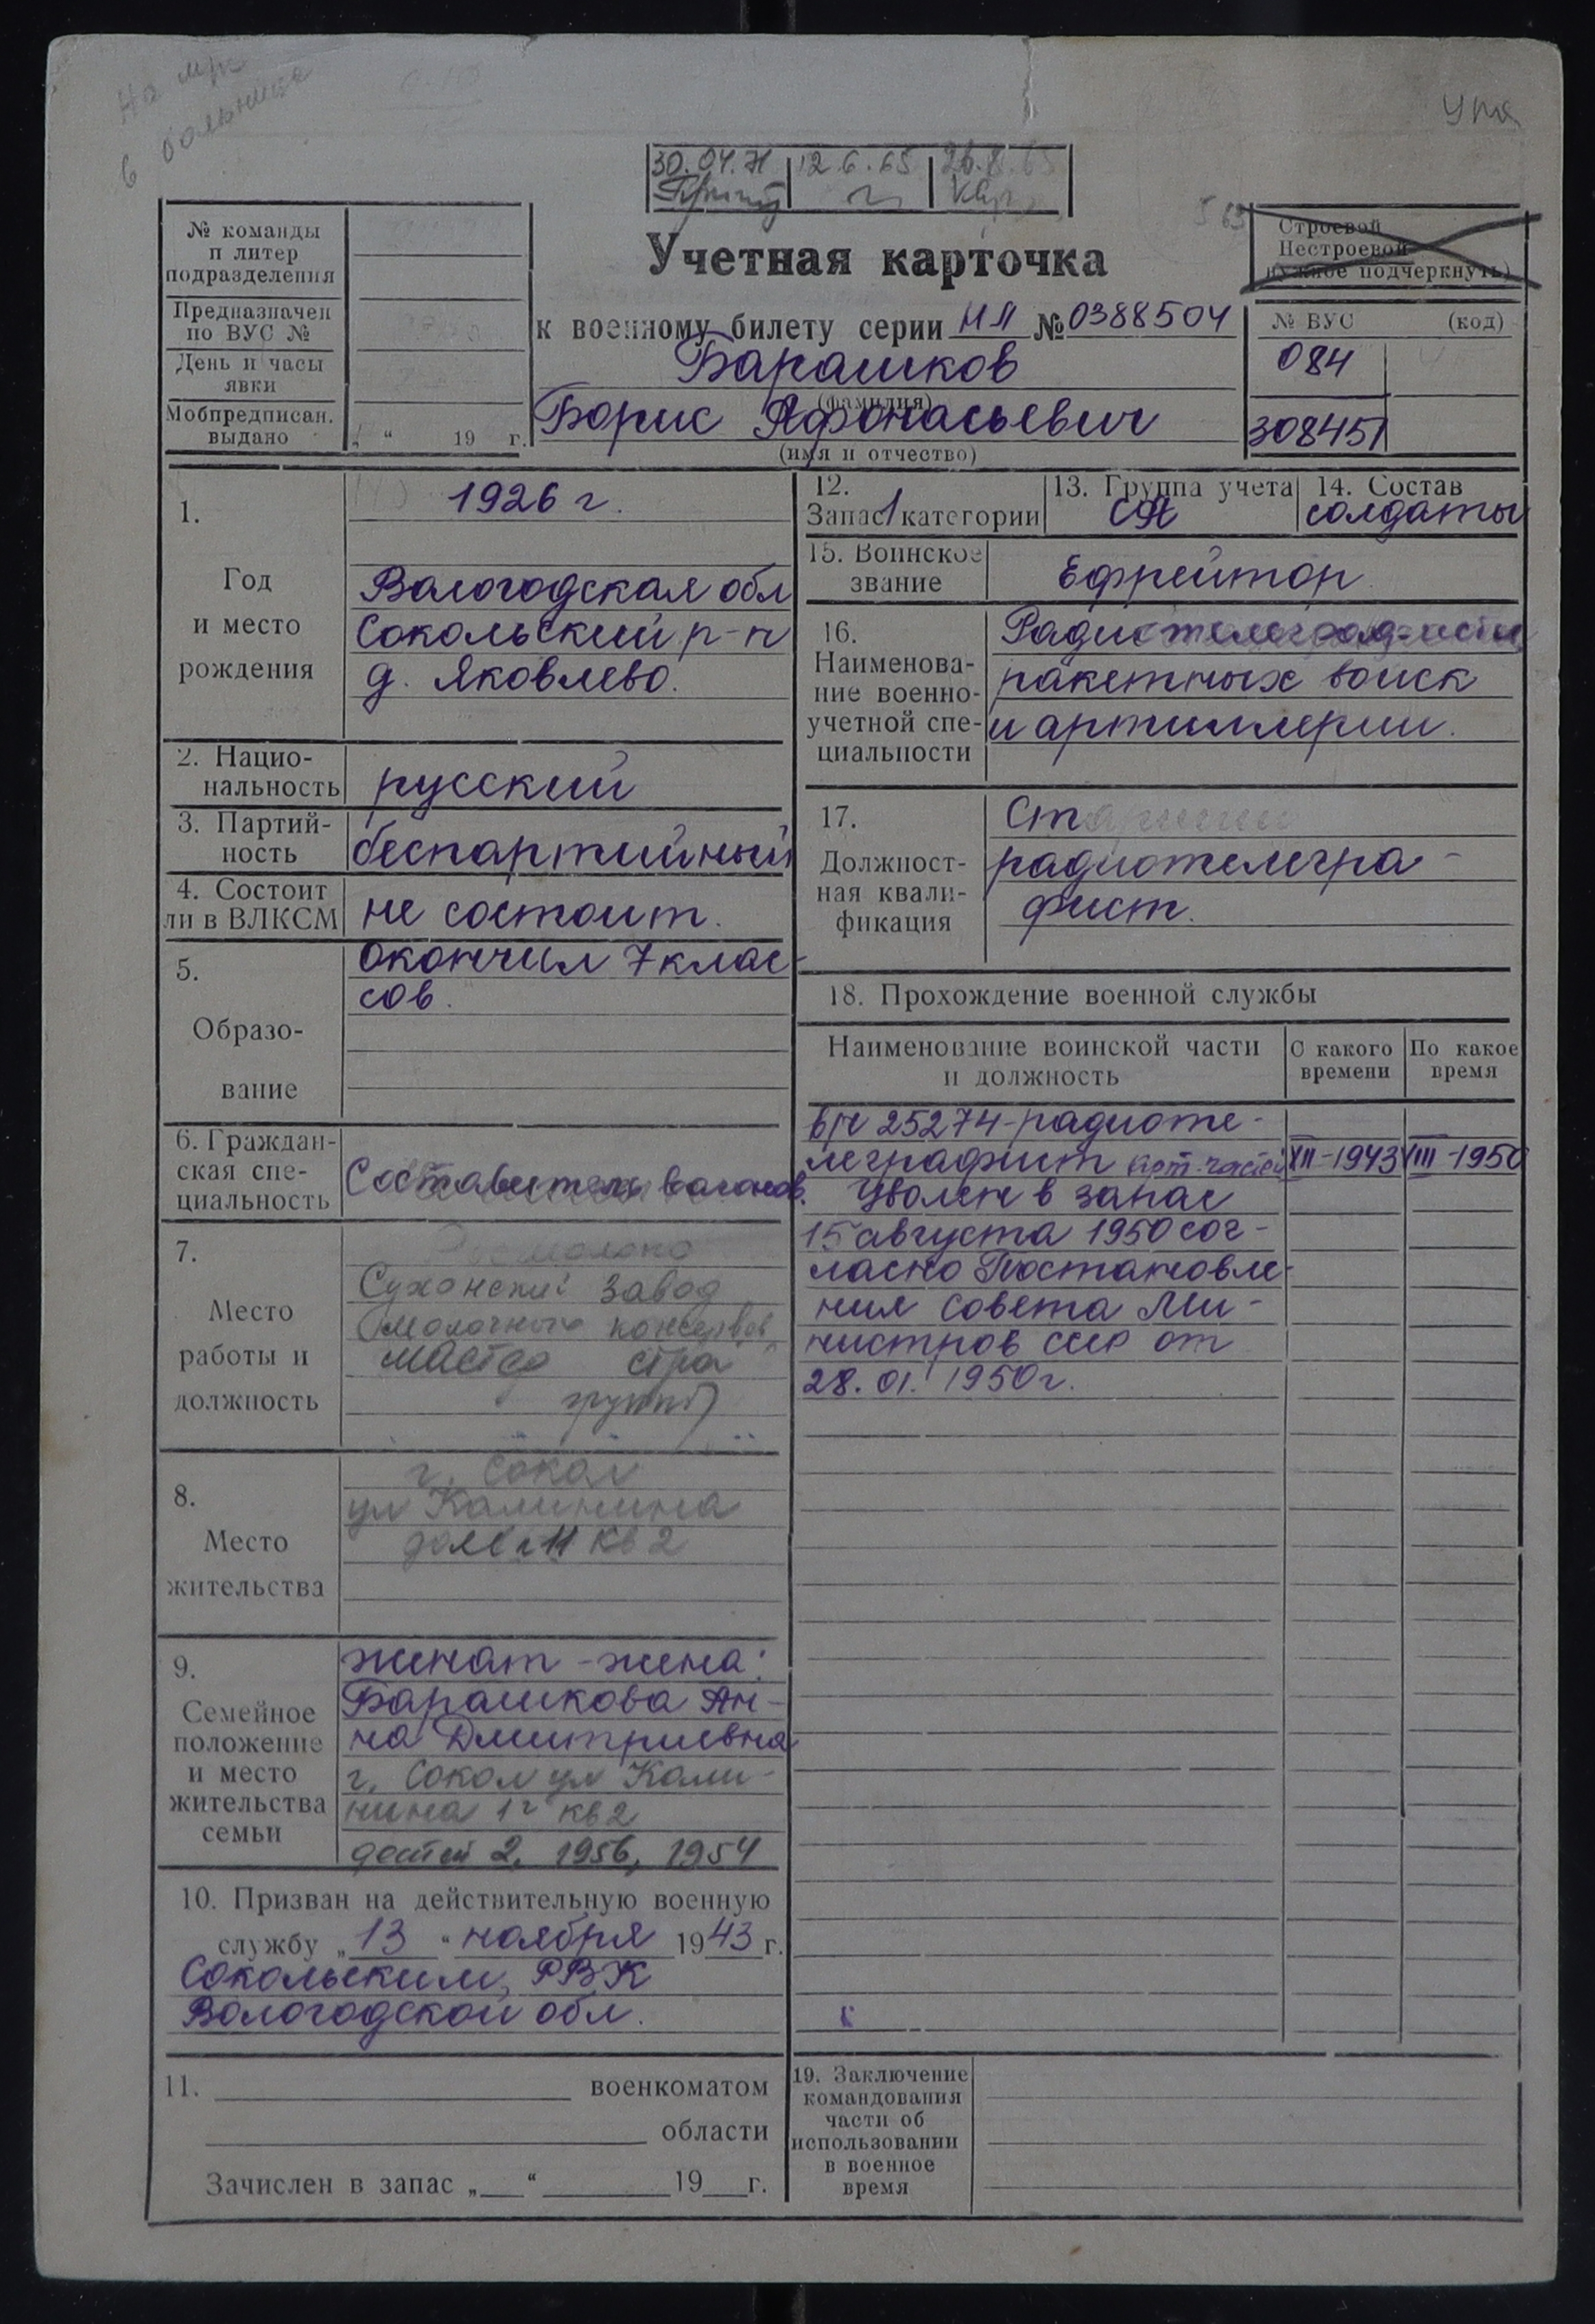 в больнице
30.04.71 12.6.65 26.8.65
Учетная карточка
к военному билету серии НП № 0388504
Барашков
(фамилия)
Борис Афонасьевич
(имя и отчество)
№ команды
и литер
подразделения
Предназначен
по ВУС №
День и часы
явки
Мобпредписан.
выдано „ “ 19 г.
Строевой
Нестроевой
(нужное подчеркнуть)
№ ВУС (код)
084
308451
1.
Год
и место
рождения
1926 г.
Вологодская обл
Сокольский р-н
д. Яковлево.
2. Нацио-
нальность
русский
3. Партий-
ность
беспартийный
4. Состоит
ли в ВЛКСМ
не состоит.
5.
Образо-
вание
Окончил 7 клас-
сов.
6. Граждан-
ская спе-
циальность
Составитель вагонов.
7.
Место
работы и
должность
Сухонский завод
молочных консервов
мастер
группы
8.
Место
жительства
г. Сокол
ул Калинина
кв 2
9.
Семейное
положение
и место
жительства
семьи
женат - жена:
Барашкова Ан-
на Дмитриевна
г. Сокол ул Кали-
нина 1г кв 2
детей 2, 1956, 1954
10. Призван на действительную военную
службу „ 13 “ ноября 1943 г.
Сокольским, РВК
Вологодской обл.
11. военкоматом
области
Зачислен в запас „ “ 19 г.
12.
Запас 1 категории
13. Группа учета
СА
14. Состав
солдаты
15. Воинское
звание
Ефрейтор.
16.
Наименова-
ние военно-
учетной спе-
циальности
Радиотелеграфисты
ракетных войск
и артиллерии.
17.
Должност-
ная квали-
фикация
Старший
радиотелегра-
фист.
18. Прохождение военной службы
Наименование воинской части
и должность
С какого
времени
По какое
время
в/ч 25274-радиоте-
леграфист арт. частей XII-1943 VIII-1950
Уволен в запас
15 августа 1950 сог-
ласно Постановле-
ния Совета Ми-
нистров СССР от
28.01.1950г.
19. Заключение
командования
части об
использовании
в военное
время